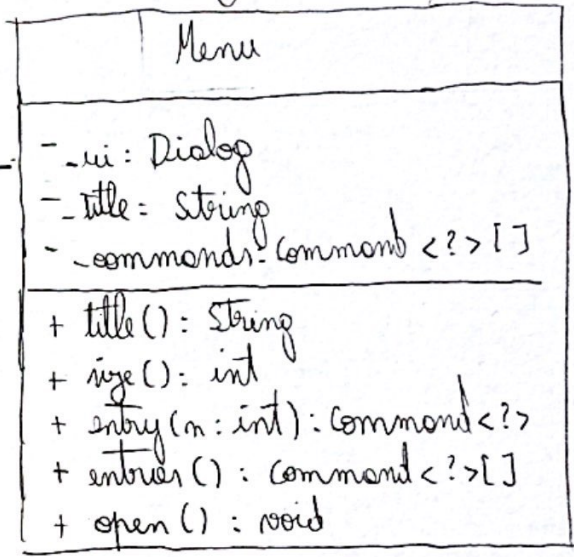 Menu
- _ui: Dialog
- _title: String
- _commands: Command <?> []
+ title(): String
+ size(): int
+ entry(n: int): Command<?>
+ entries(): Command<?>[]
+ open(): void